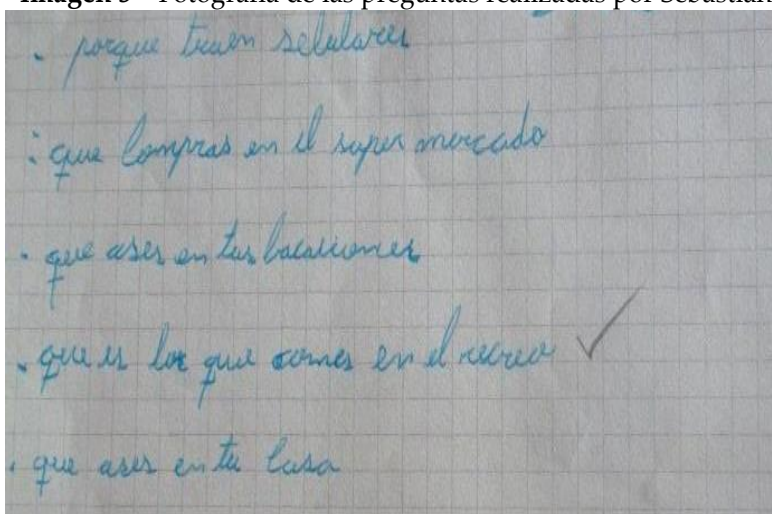 Fotografía de las preguntas realizadas por Sebastián
. porque traen selulares
. que compras en el super mercado
. que ases en tus bacaciones
. que es lo que comes en el recreo ✓
. que ases en tu casa